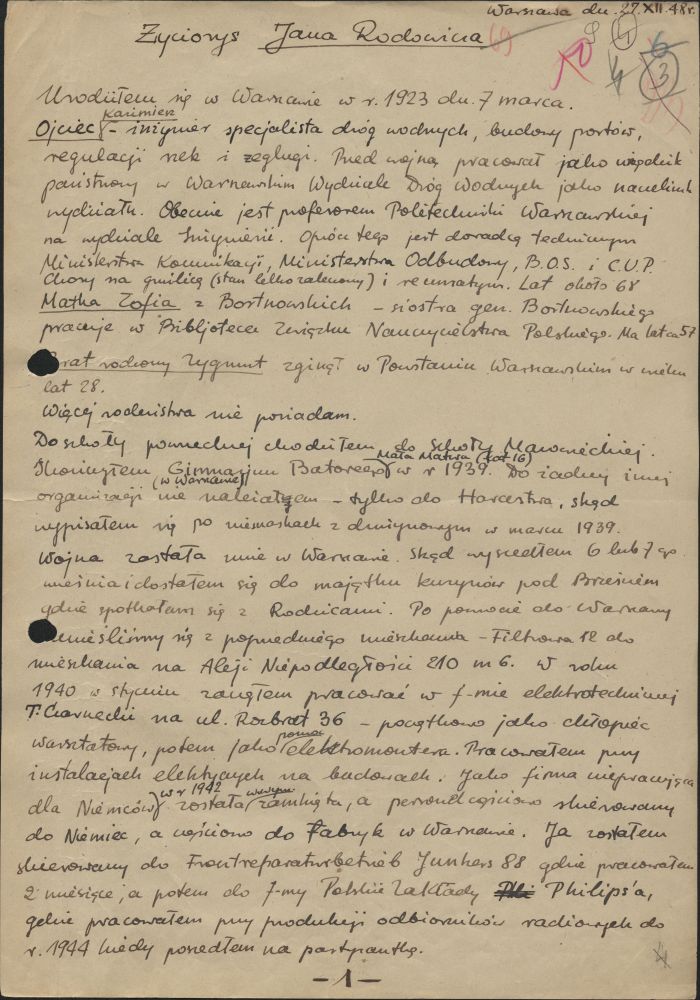 Warszawa dn. 27.XII.48r.
Życiorys Jana Rodowicza
69 9 4 10 4 6 3
Urodziłem się w Warszawie w r. 1923 dn. 7 marca.
Kazimierz
Ojciec – inżynier specjalista dróg wodnych, budowy portów,
regulacji rzek i żeglugi. Przed wojną pracował jako urzędnik
państwowy w Warszawskim Wydziale Dróg Wodnych jako naczelnik
wydziału. Obecnie jest profesorem Politechniki Warszawskiej
na wydziale Inżynierii. Oprócz tego jest doradcą technicznym
Ministerstwa Komunikacji, Ministerstwa Odbudowy, B.O.S. i C.U.P.
Chory na gruźlicę (stan lekko zaleczony) i reumatyzm. Lat około 68
Matka Zofia z Bortnowskich – siostra gen. Bortnowskiego
pracuje w Bibljotece Związku Nauczycielstwa Polskiego. Ma lat ca 57
Brat rodzony Zygmunt zginął w Powstaniu Warszawskim w wieku
lat 28.
Więcej rodzeństwa nie posiadam.
Do szkoły powszechnej chodziłem do Szkoły Mazowieckiej.
Mała Matura (kod 16)
Skończyłem Gimnazjum Batorego w r 1939. Do żadnej innej
(w Warszawie)
organizacji nie należałem – tylko do Harcerstwa, skąd
wypisałem się po niesnaskach z drużynowym w marcu 1939.
Wojna zastała mnie w Warszawie. Skąd wyszedłem 6 lub 7 go
września i dostałem się do majątku kuzynów pod Brześciem
gdzie spotkałam się z Rodzicami. Po powrocie do Warszawy
przenieśliśmy się z poprzedniego mieszkania – Filtrowa 12 do
mieszkania na Aleji Niepodległości 210 m 6. W roku
1940 w styczniu zacząłem pracować w f-mie elektrotechnicznej
T. Czarnecki na ul. Rozbrat 36 – początkowo jako chłopiec
pomoc
warsztatowy, potem jako elektromontera. Pracowałem przy
instalacjach elektrycznych na budowach. Jako firma niepracująca
w r 1942
dla Niemców została zamknięta, a personel częściowo skierowany
do Niemiec, a częściowo do Fabryk w Warszawie. Ja zostałem
skierowany do Frontreparaturbetrieb Junkers 88 gdzie pracowałem
2 miesiące, a potem do f-my Polskie Zakłady Philips'a,
gdzie pracowałem przy produkcji odbiorników radiowych do
r. 1944 kiedy poszedłem na partyzantkę.
– 1 –